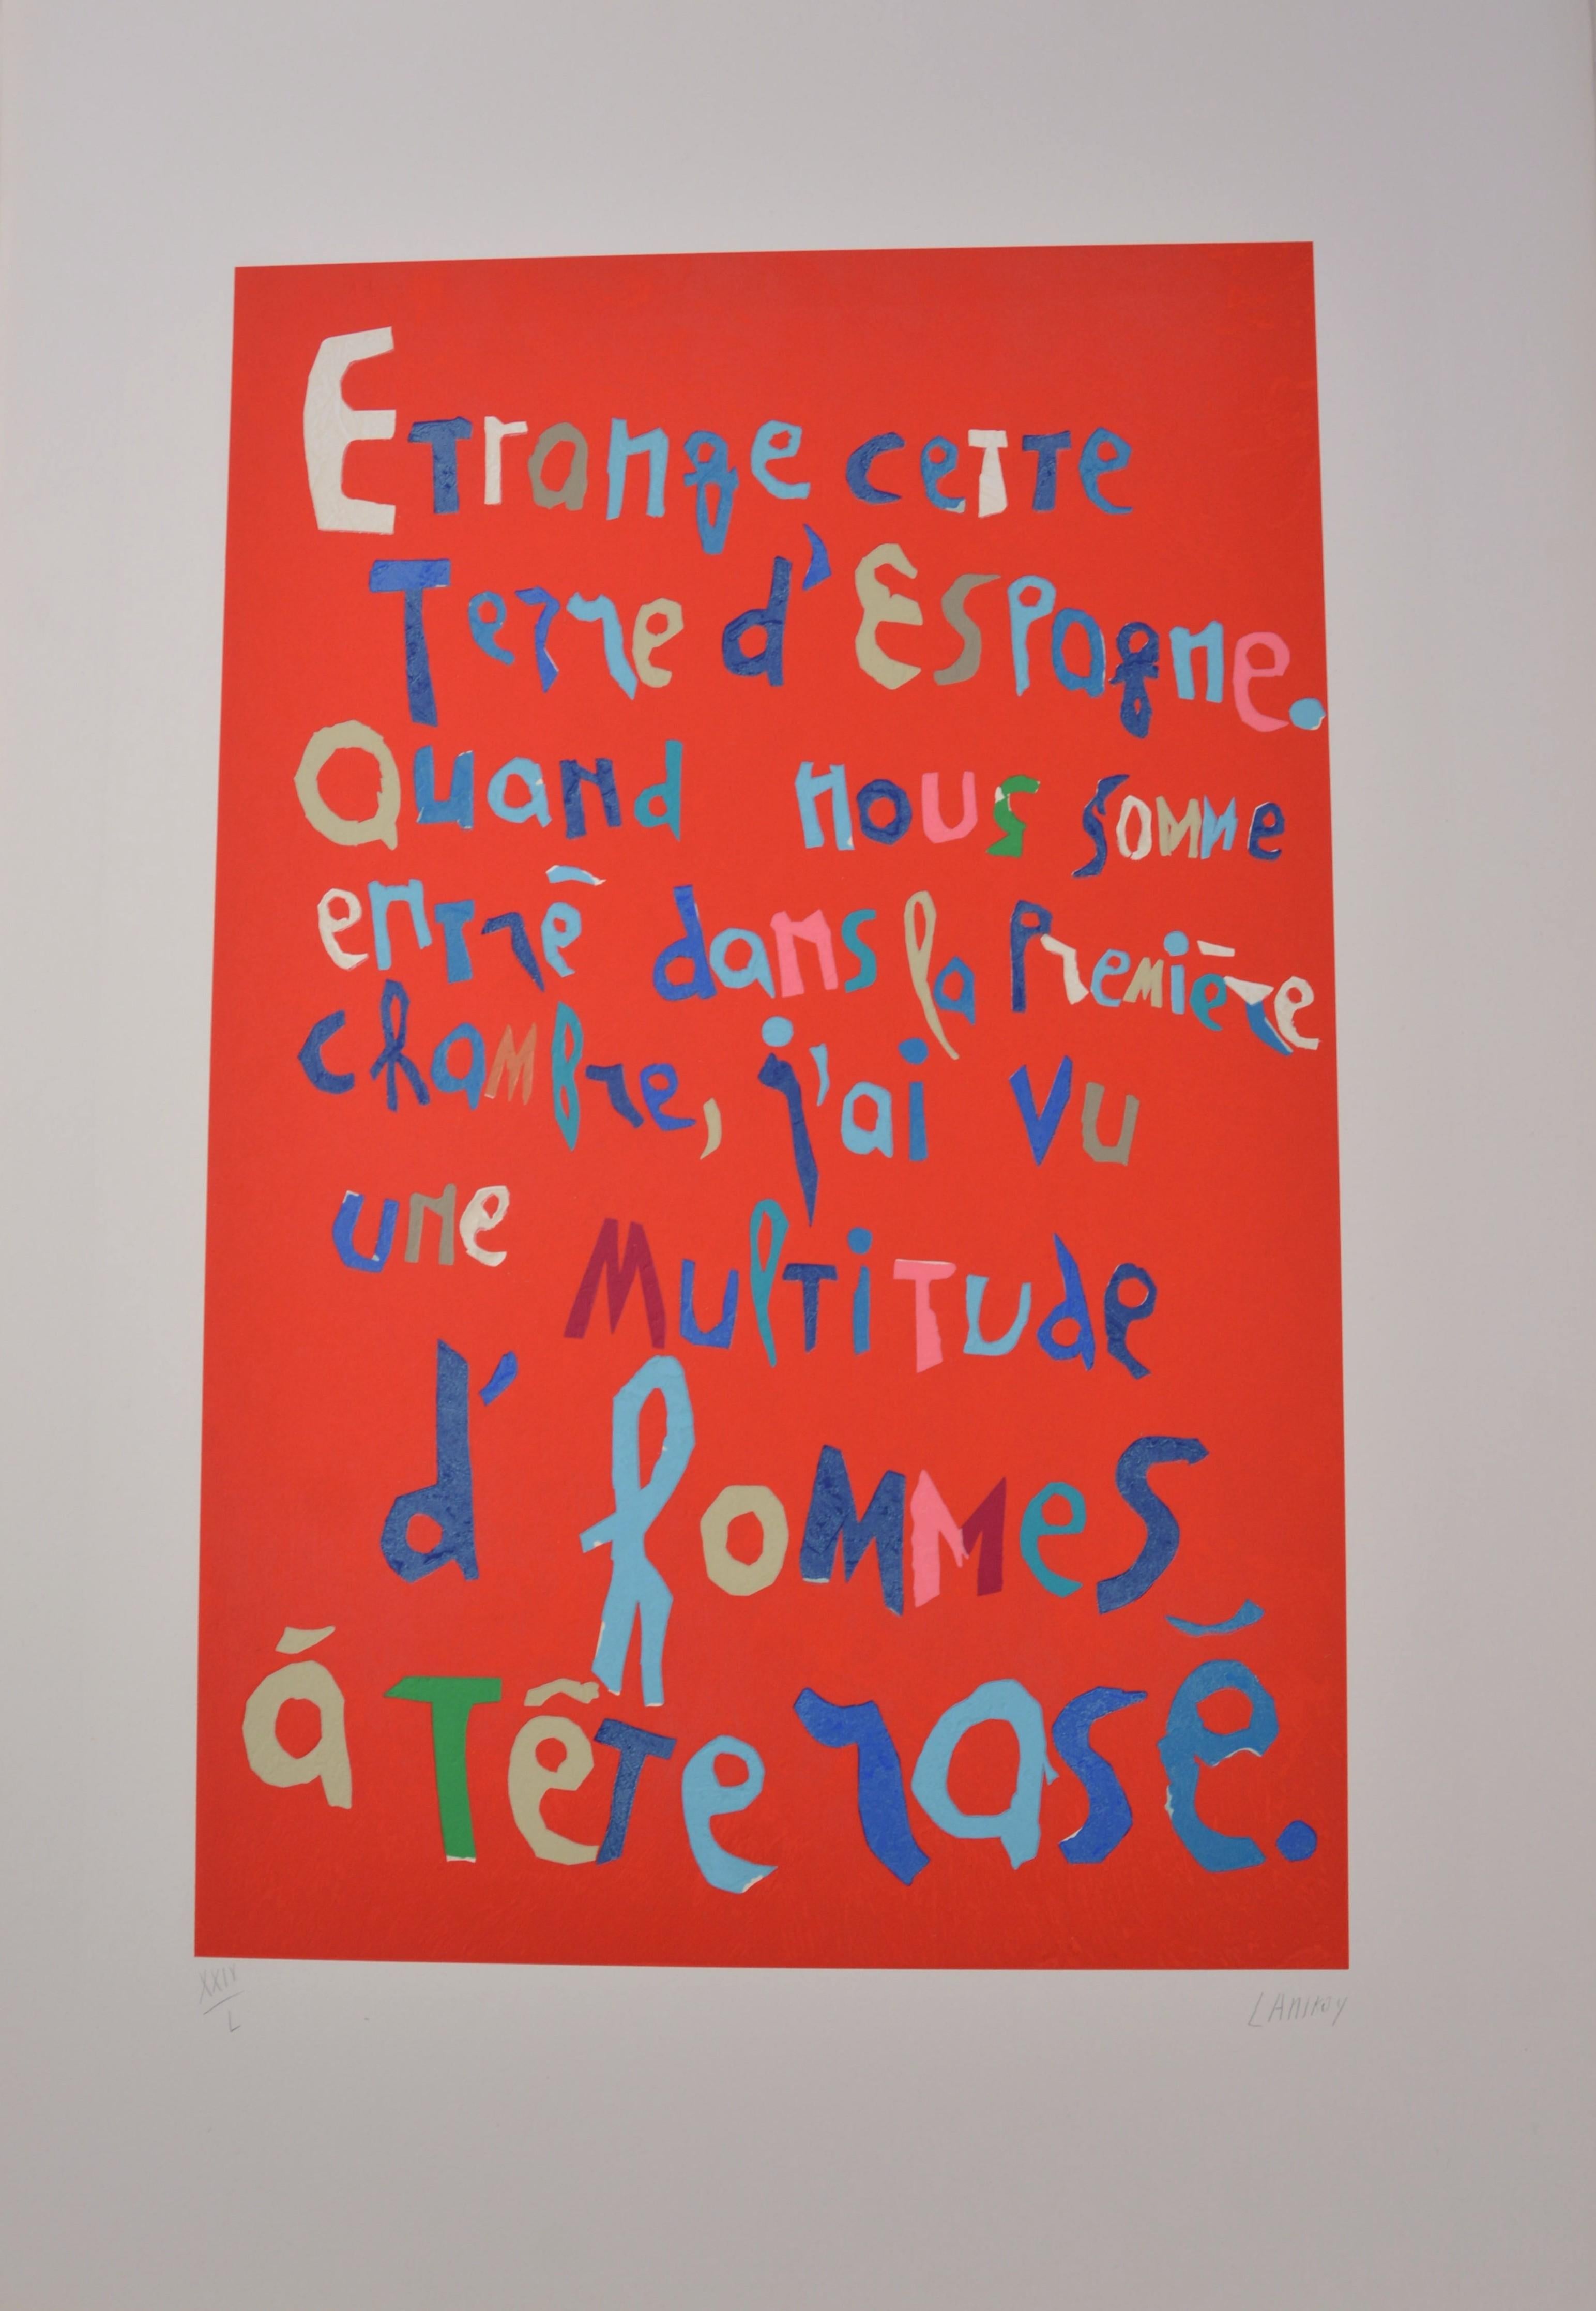 Etrange cette
Terre d'Espagne.
Quand nous somme
entrē dans la Première
chambre, j'ai vu
une Multitude
d'hommes
á Tête rasé.
XXIX
L
LANSKOY